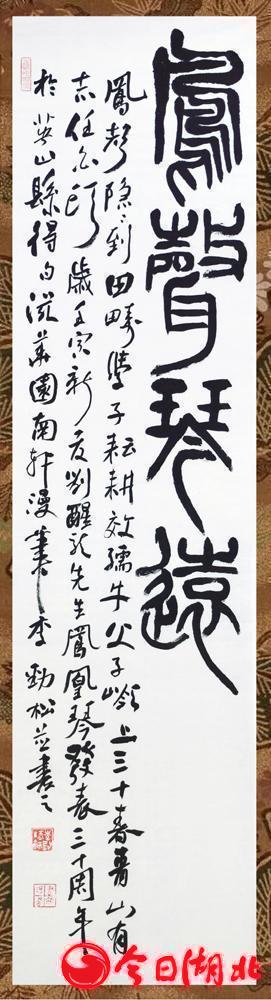 鳳聲琴遠
鳳聲隐〻到田畴學子耘耕效孺牛父子嶺上三十春青山有
志任白頭歲壬寅新夏劉醒龍先生鳳凰琴發表三十周年
於英山縣得句園南軒漫筆李勁松並書之
今日湖北